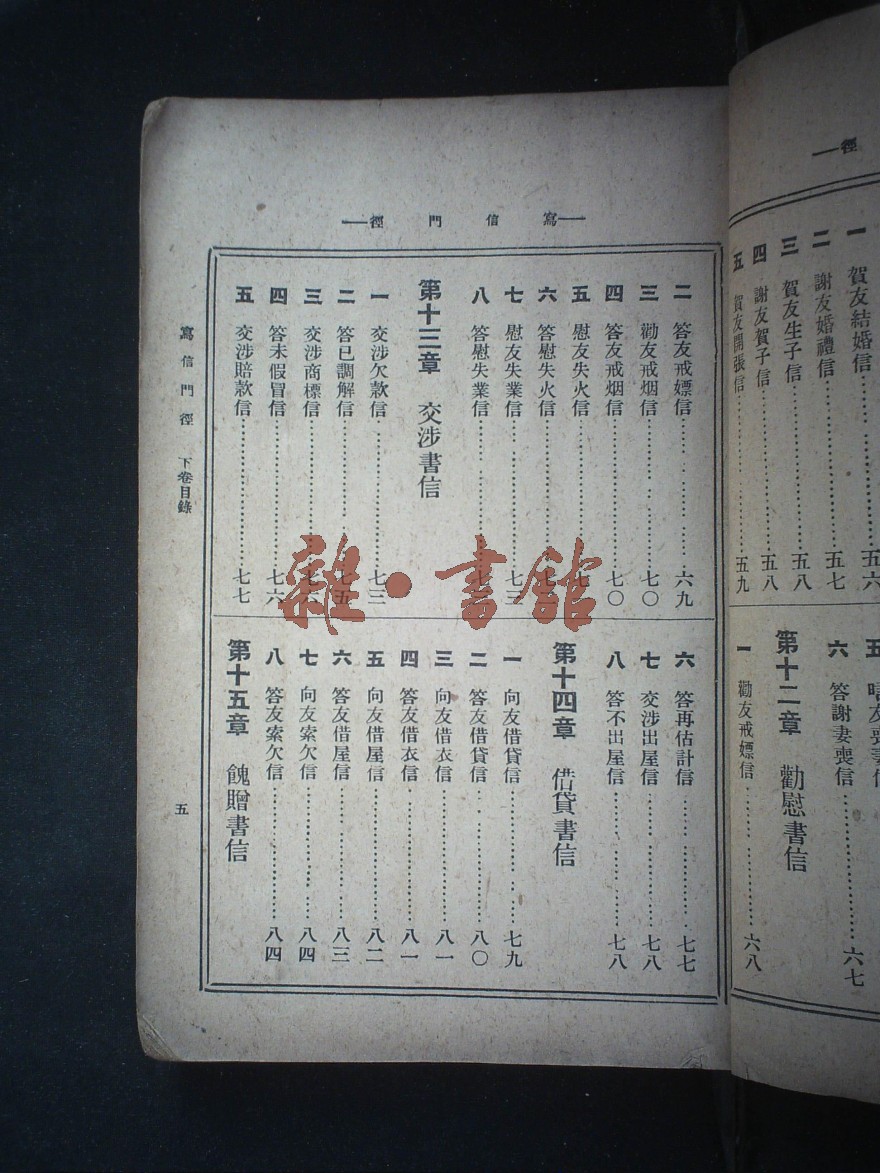 徑
一 賀友結婚信 五六
二 謝友婚禮信 五七
三 賀友生子信 五八
四 謝友賀子信 五八
五 賀友開張信 五九
五 友喪
六 答謝妻喪信 六七
第十二章 勸慰書信
一 勸友戒嫖信 六八
寫信門徑
二 答友戒嫖信 六九
三 勸友戒烟信 七〇
四 答友戒烟信 七〇
五 慰友失火信 七
六 答慰失火信 七
七 慰友失業信 七三
八 答慰失業信 七
第十三章 交涉書信
一 交涉欠款信 七三
二 答已調解信 七五
三 交涉商標信 七六
四 答未假冒信 七六
五 交涉賠款信 七七
六 答再估計信 七七
七 交涉出屋信 七八
八 答不出屋信 七八
第十四章 借貸書信
一 向友借貸信 七九
二 答友借貸信 八〇
三 向友借衣信 八一
四 答友借衣信 八一
五 向友借屋信 八二
六 答友借屋信 八三
七 向友索欠信 八四
八 答友索欠信 八四
第十五章 餽贈書信
寫信門徑 下卷目錄 五
雜·書館